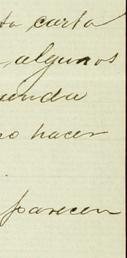 ta carta
algunos
uenda
no hacer
parecen